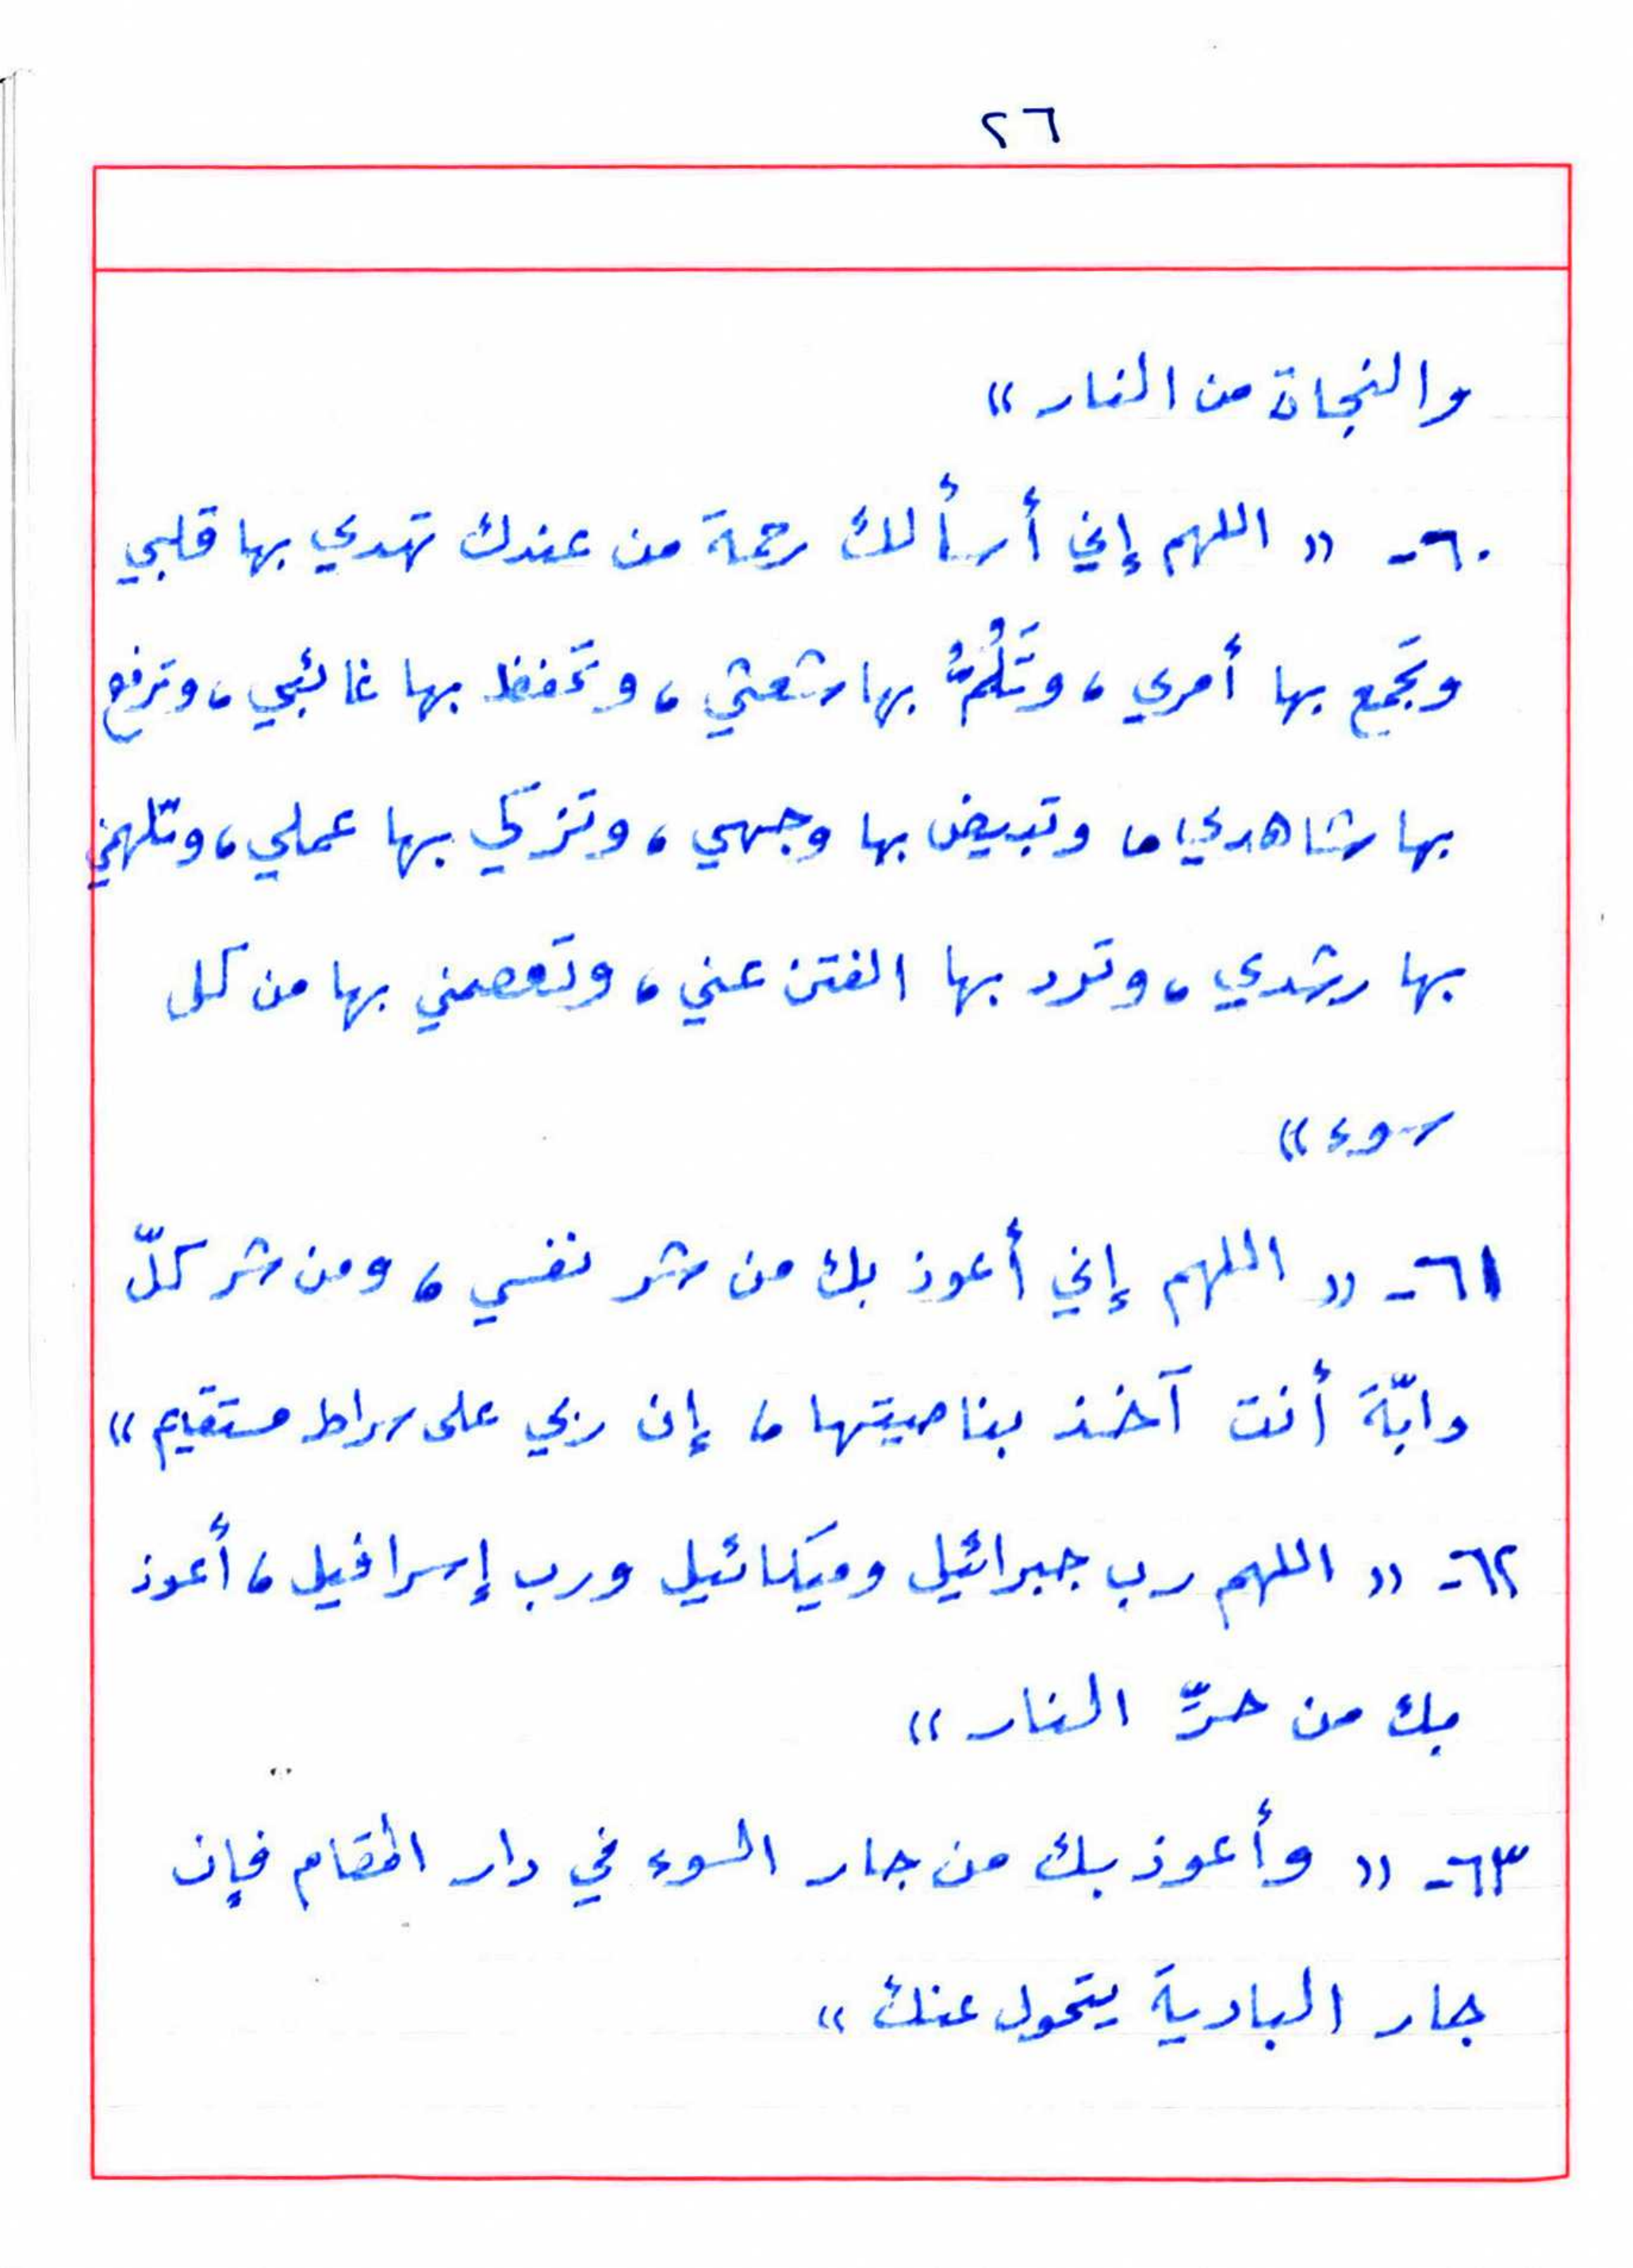 ٢٦
والنجاة من النار »
٦٠- « اللهم إني أسألك رحمة من عندك تهدي بها قلبي
وتجمع بها أمري ، وتَلُمُّ بها شعثي ، وتحفظ بها غائبي ، وترفع
بها شاهدي ، وتبيض بها وجهي ، وتزكي بها عملي ، وتلهمني
بها رشدي ، وترد بها الفتن عني ، وتعصمني بها من كل
سوء »
٦١- « اللهم إني أعوذ بك من شر نفسي ، ومن شر كلّ
دابّة أنت آخذ بناصيتها ، إن ربي على صراط مستقيم »
٦٢- « اللهم رب جبرائيل وميكائيل ورب إسرافيل ، أعوذ
بك من حرِّ النار »
٦٣- « وأعوذ بك من جار السوء في دار المقام فإن
جار البادية يتحول عنك »